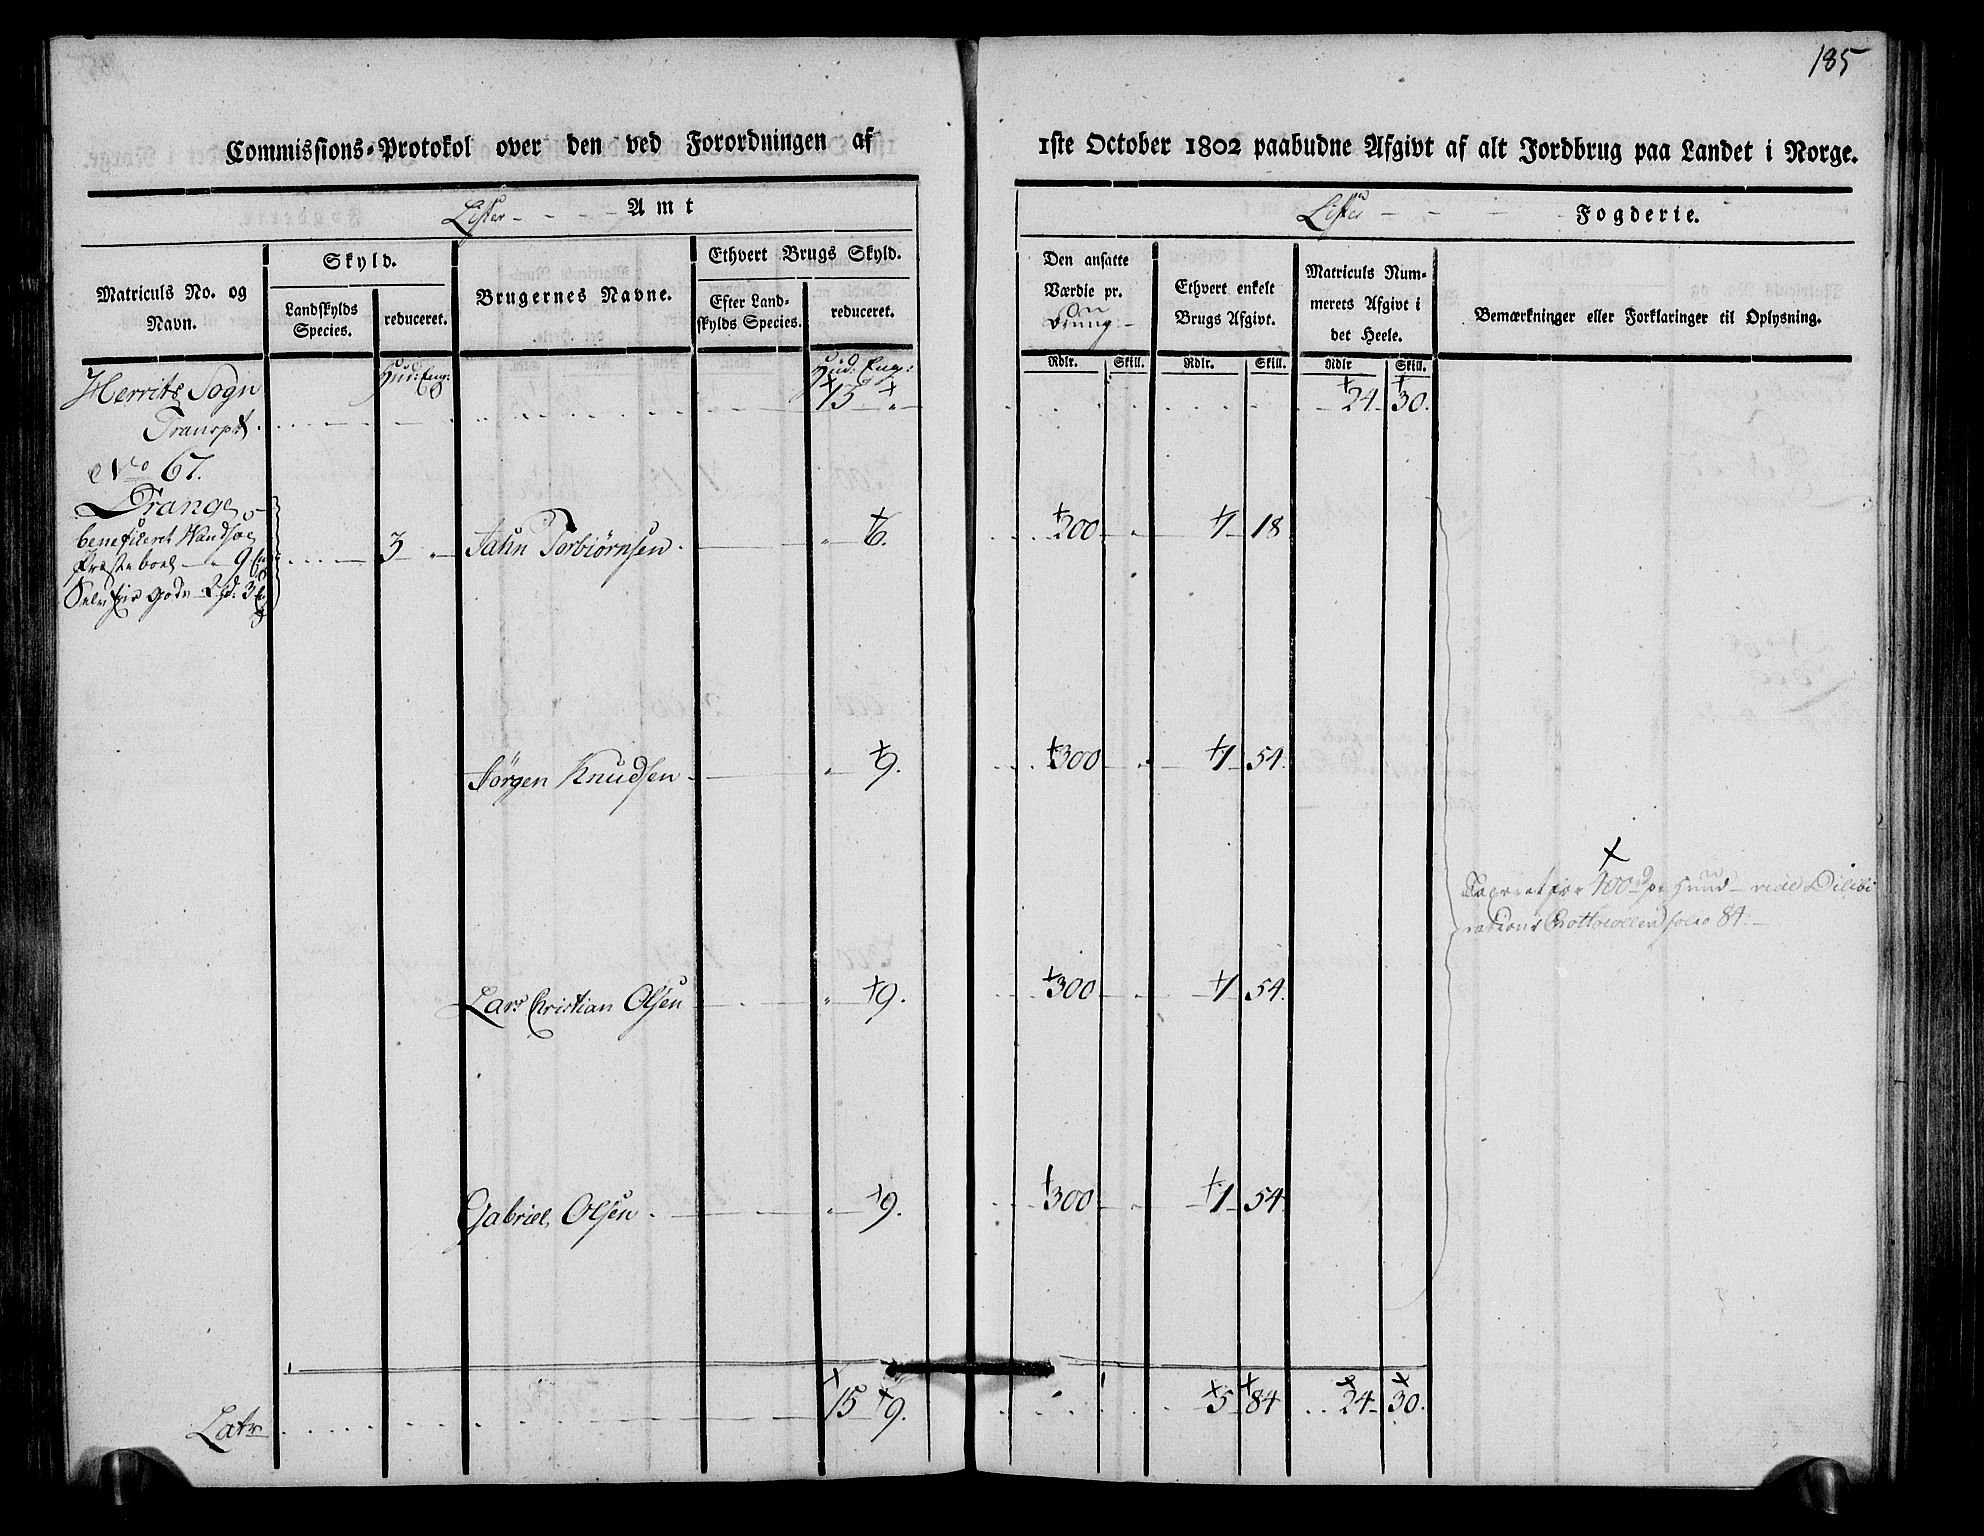 185
Commissions-Protokol over den ved Forordningen af 1ste October 1802 paabudne Afgivt af alt Jordbrug paa Landet i Norge.
Lister - - - - Amt
Lister - - - - Fogderie.
Matriculs No. og Navn.
Skyld.
Landskylds Species.
reduceret.
Brugernes Navne.
Ethvert Brugs Skyld.
Efter Landskylds Species.
reduceret.
Den ansatte Værdie pr.
Ethvert enkelt Brugs Afgivt.
Matriculs Nummerets Afgivt i det Heele.
Bemærkninger eller Forklaringer til Oplysning.
Hud: Eng:
Hud. Eng:
Rdlr. Skill. Rdlr. Skill. Rdlr Skill.
Herrits Sogn
Transpt. 13 " 24 30.
No 67.
Drange
beneficeret
Præsteboel - " 9
Gods 2 hd: 3
3 " Jahn Torbiørnsen. " 6. 200 " 1 18
Jørgen Knudsen " 9. 300 " 1 54.
+
for 400 rd pr Huud
folio 84
Lars Christian Olsen " 9. 300 " 1 54.
Gabriel Olsen. " 9. 300 " 1 54
Latr 15 9. 5 84 24 30.